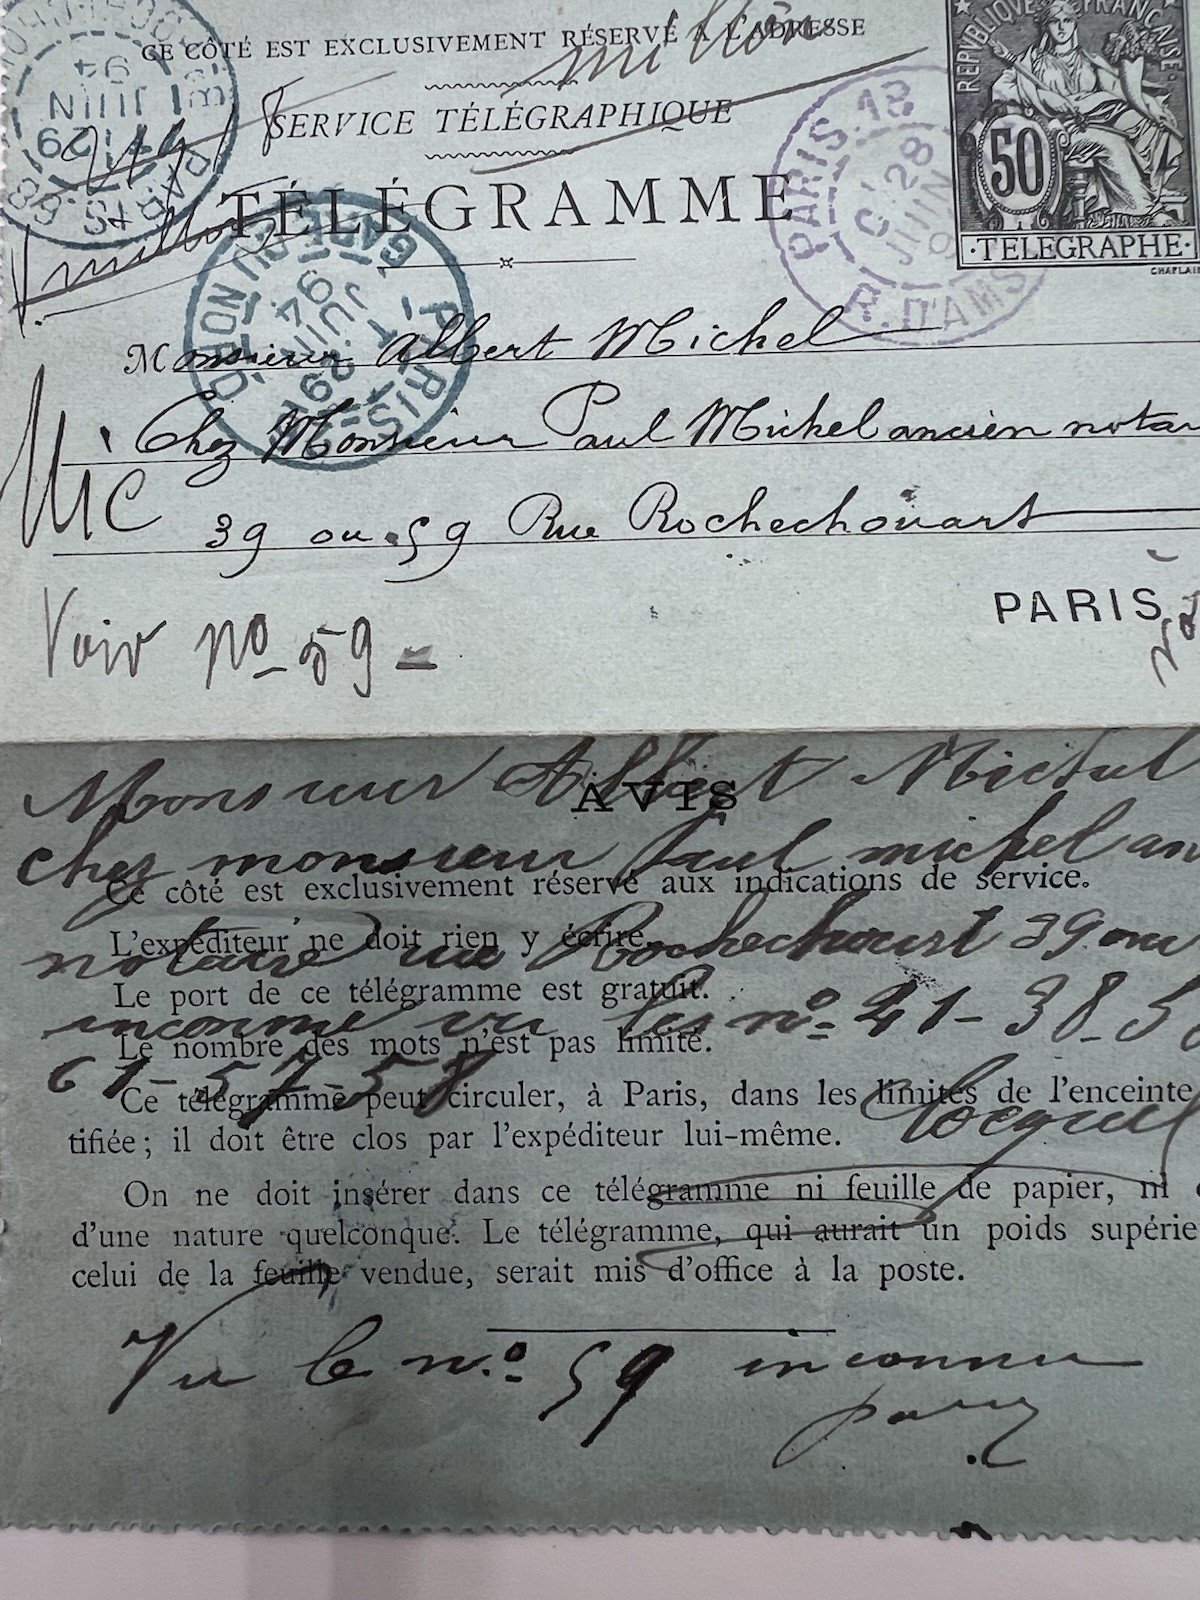 CE CÔTÉ EST EXCLUSIVEMENT RÉSERVÉ A L'ADRESSE
REPVBLIQVE FRANCAISE
SERVICE TÉLÉGRAPHIQUE
TÉLÉGRAMME
50
TELEGRAPHE
CHAPLAIN
PARIS 18
28
JUIN
R. D'AMS
PARIS
29
JUIN
94
PARIS
GARE DU NORD
29
JUIN
94
Monsieur Albert Michel
Chez Monsieur Paul Michel ancien notai
39 ou 59 Rue Rochechouart
PARIS
Voir No 59
Monsieur Albert Michel
AVIS
chez monsieur Paul michel an
Ce côté est exclusivement réservé aux indications de service.
L'expéditeur ne doit rien y écrire.
notaire rue Rochechouart 39 ou
Le port de ce télégramme est gratuit.
inconnu vu les no 41-38-5
Le nombre des mots n'est pas limité.
61-57-58
Ce télégramme peut circuler, à Paris, dans les limites de l'enceinte
tifiée; il doit être clos par l'expéditeur lui-même.
On ne doit insérer dans ce télégramme ni feuille de papier, ni
d'une nature quelconque. Le télégramme, qui aurait un poids supérie
celui de la feuille vendue, serait mis d'office à la poste.
Vu le no 59 inconnu